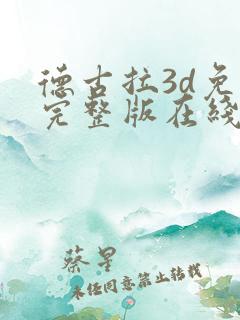 德古拉3d免
完整版在线
蔡星
未经同意禁止转载